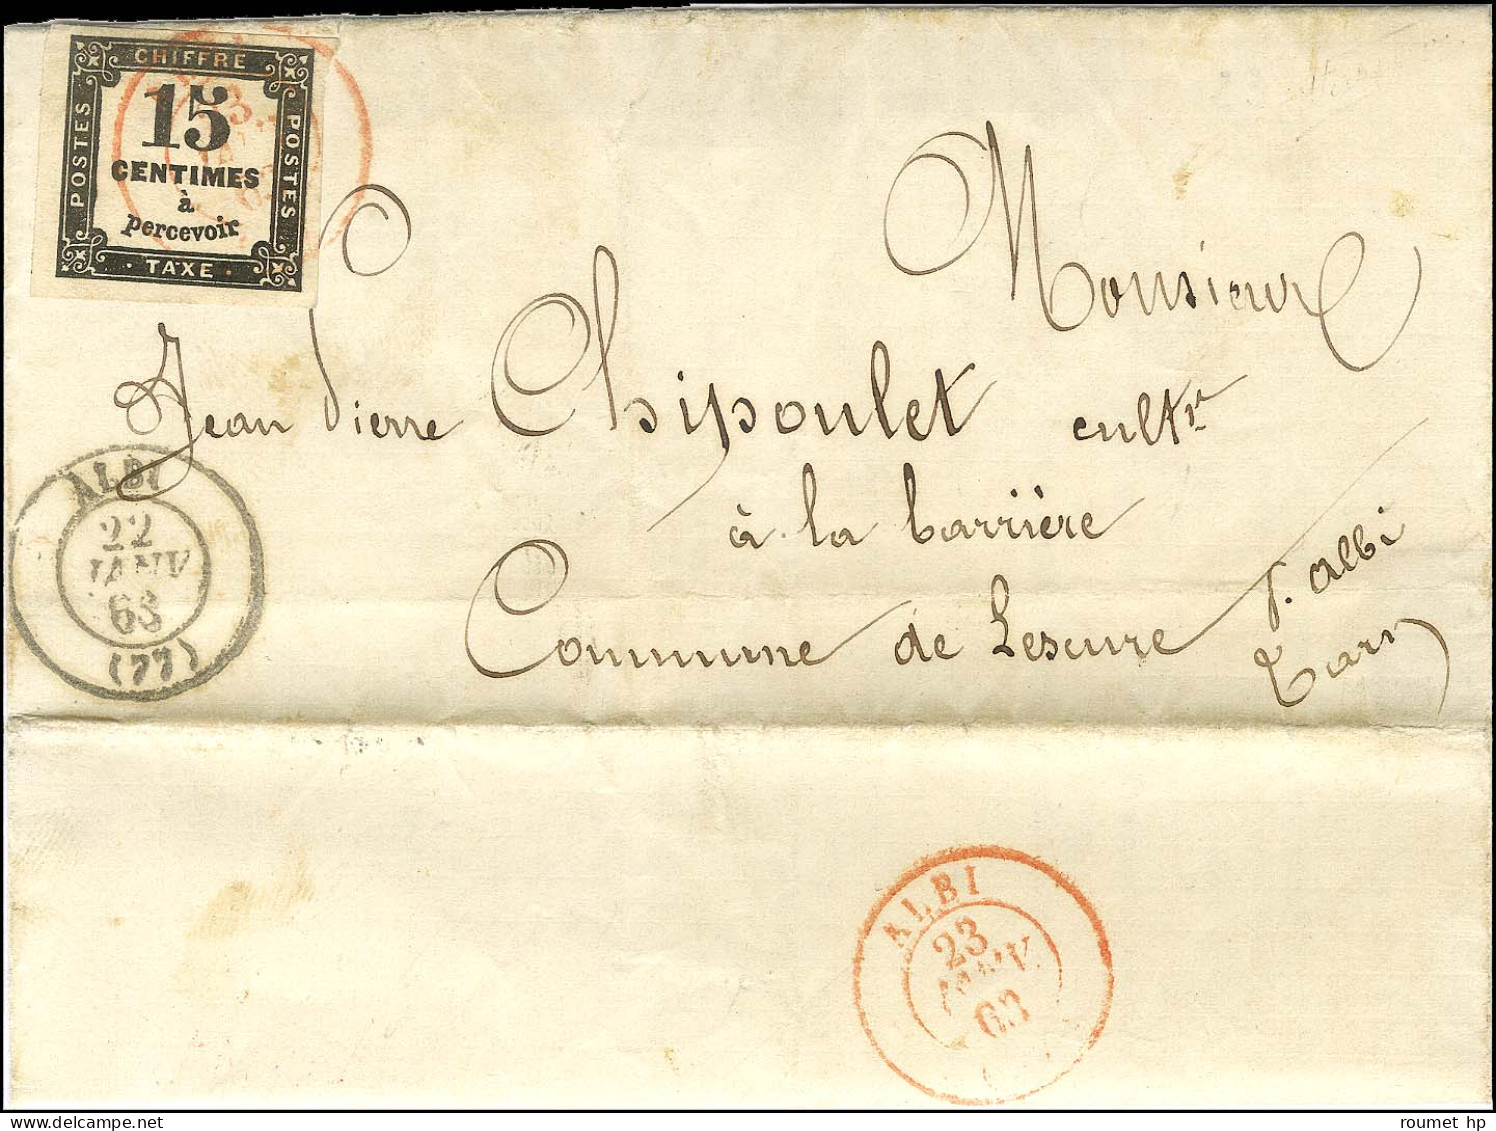 CHIFFRE
POSTES
15
CENTIMES
à
percevoir
POSTES
· TAXE ·
Monsieur
Jean Pierre Chipoulet cultr
à la barrière
Commune de Lescure
p. Albi
Tarn)
ALBI
22
JANV
63
(77)
ALBI
23
JANV.
63
roumet hp